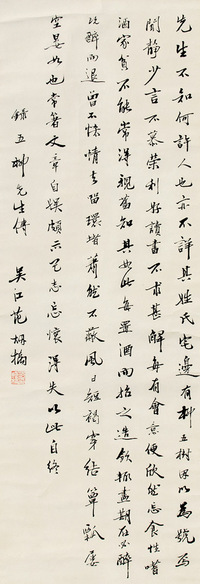 先生不知何許人也亦不詳其姓氏宅邊有柳五樹因以為號焉
閒静少言不慕榮利好讀書不求甚解每有會意便欣然忘食性嗜
酒家貧不能常得親舊知其如此每置酒而招之造飲輒盡期在必醉
既醉而退曾不悋情去留環堵蕭然不蔽風日短褐穿結簞瓢屢
空晏如也常著文章自娱頗示己志忘懷得失以此自終
錄五柳先生傳
吳江范烟橋